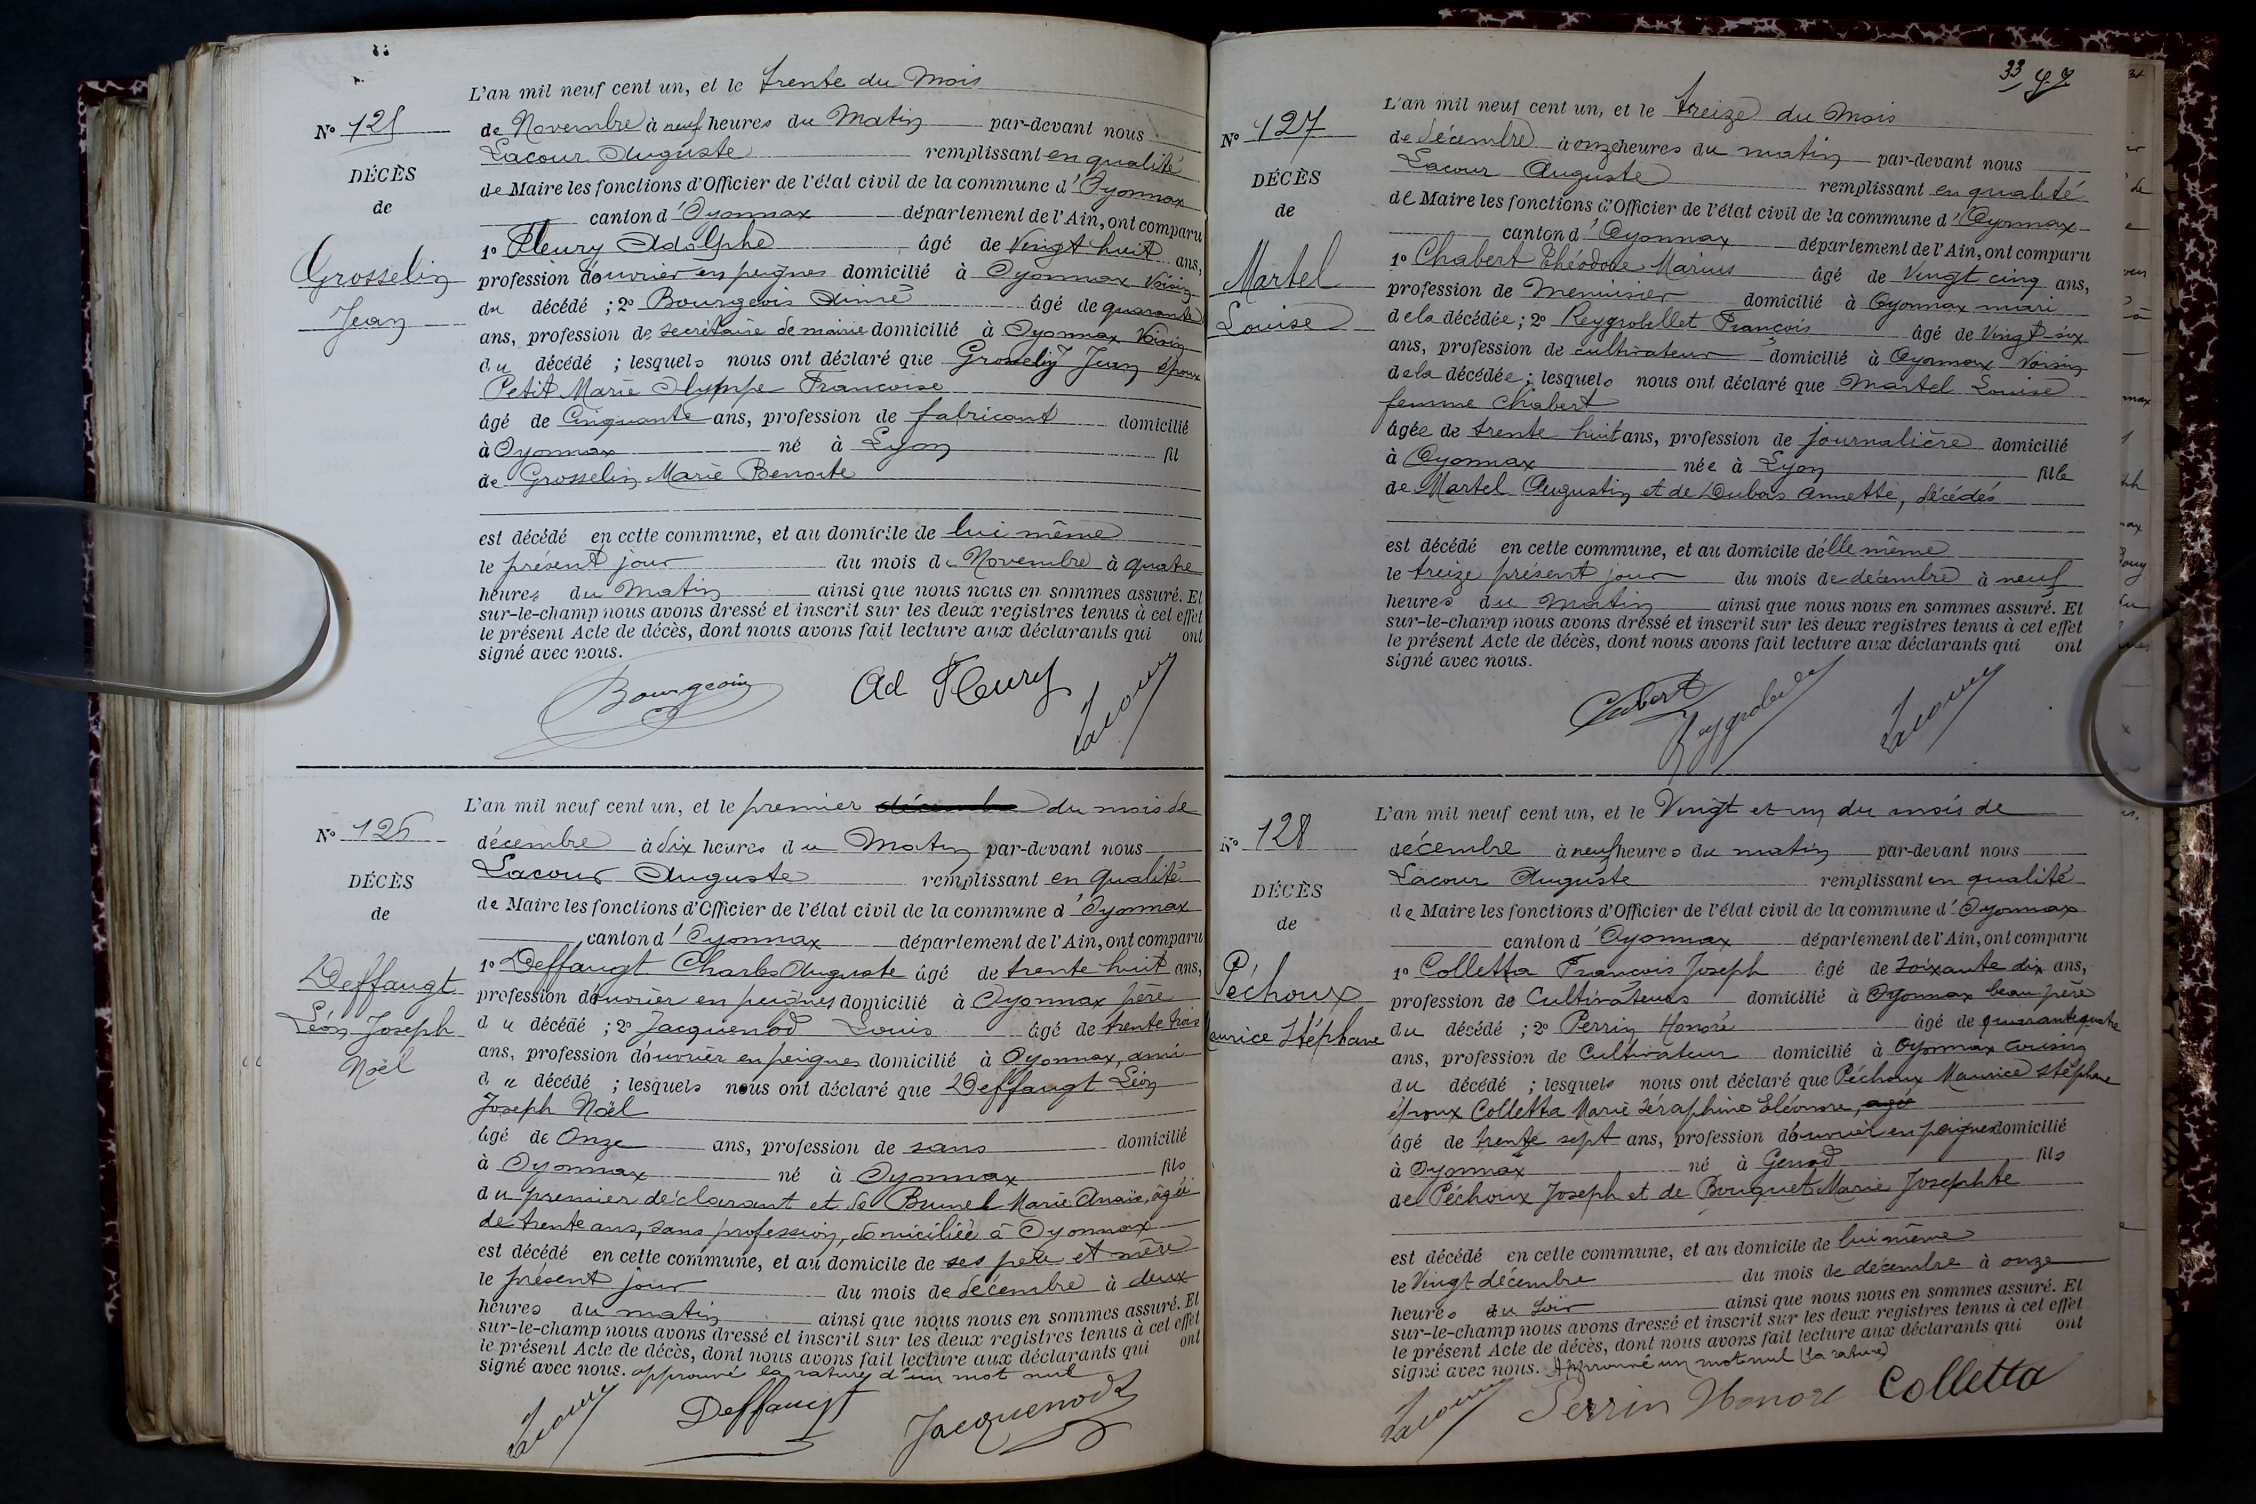 L'an mil neuf cent un, et le trente du Mois
N° 125
de Novembre à neuf heures du Matin par-devant nous
Lacour Auguste remplissant en qualité
DÉCÈS
de Maire les fonctions d'Officier de l'état civil de la commune d'Oyonnax
de
canton d'Oyonnax département de l'Ain, ont comparu
1° Fleury Adolphe âgé de Vingt huit ans,
Grosselin
profession d'ouvrier en peignes domicilié à Oyonnax Voisin
du décédé ; 2° Bourgeois Aimé âgé de quarante
Jean
ans, profession de secrétaire de mairie domicilié à Oyonnax Voisin
du décédé ; lesquels nous ont déclaré que Grosselin Jean époux
Petit Marie Olympe Françoise
âgé de Cinquante ans, profession de fabricant domicilié
à Oyonnax né à Lyon fil
de Grosselin Marie Benoite
est décédé en cette commune, et au domicile de lui même
le présent jour du mois de Novembre à quatre
heures du Matin ainsi que nous nous en sommes assuré. Et
sur-le-champ nous avons dressé et inscrit sur les deux registres tenus à cet effet
le présent Acte de décès, dont nous avons fait lecture aux déclarants qui ont
signé avec nous.
Bourgeois Ad Fleury Lacour
L'an mil neuf cent un, et le premier décembre du mois de
N° 126
décembre à dix heures du Matin par-devant nous
Lacour Auguste remplissant en qualité
DÉCÈS
de Maire les fonctions d'Officier de l'état civil de la commune d'Oyonnax
de
canton d'Oyonnax département de l'Ain, ont comparu
1° Deffaugt Charles Auguste âgé de trente huit ans,
Deffaugt
profession d'ouvrier en peignes domicilié à Oyonnax père
Léon Joseph
du décédé ; 2° Jacquenod Louis âgé de trente trois
Noël
ans, profession d'ouvrier en peignes domicilié à Oyonnax, ami
du décédé ; lesquels nous ont déclaré que Deffaugt Léon
Joseph Noël
âgé de Onze ans, profession de sans domicilié
à Oyonnax né à Oyonnax fils
du premier déclarant et de Brunet Marie Anaïs, âgée
de trente ans, sans profession, domiciliée à Oyonnax
est décédé en cette commune, et au domicile de ses père et mère
le présent jour du mois de décembre à deux
heures du matin ainsi que nous nous en sommes assuré. Et
sur-le-champ nous avons dressé et inscrit sur les deux registres tenus à cet effet
le présent Acte de décès, dont nous avons fait lecture aux déclarants qui ont
signé avec nous. approuvé la rature d'un mot nul
Lacour Deffaugt Jacquenod L
33
L'an mil neuf cent un, et le treize du Mois
N° 127
de décembre à onze heures du matin par-devant nous
Lacour Auguste remplissant en qualité
DÉCÈS
de Maire les fonctions d'Officier de l'état civil de la commune d'Oyonnax
de
canton d'Oyonnax département de l'Ain, ont comparu
1° Chabert Théodore Marius âgé de Vingt cinq ans,
Martel
profession de Menuisier domicilié à Oyonnax mari
Louise
de la décédée ; 2° Reygrobellet François âgé de Vingt-six
ans, profession de cultivateur domicilié à Oyonnax Voisin
de la décédée ; lesquels nous ont déclaré que Martel Louise
femme Chabert
âgée de trente huit ans, profession de journalière domicilié
à Oyonnax née à Lyon fille
de Martel Augustin et de Dubois Annette, décédés
est décédé en cette commune, et au domicile d'elle même
le treize présent jour du mois de décembre à neuf
heures du Matin ainsi que nous nous en sommes assuré. Et
sur-le-champ nous avons dressé et inscrit sur les deux registres tenus à cet effet
le présent Acte de décès, dont nous avons fait lecture aux déclarants qui ont
signé avec nous.
Cabert Lacour
L'an mil neuf cent un, et le Vingt et un du mois de
N° 128
décembre à neuf heures du matin par-devant nous
Lacour Auguste remplissant en qualité
DÉCÈS
de Maire les fonctions d'Officier de l'état civil de la commune d'Oyonnax
de
canton d'Oyonnax département de l'Ain, ont comparu
1° Colletta François Joseph âgé de soixante dix ans,
Péchoux
profession de Cultivateurs domicilié à Oyonnax beau père
aurice Stéphane
du décédé ; 2° Perrin Honoré âgé de quarante quatre
ans, profession de Cultivateur domicilié à Oyonnax Cousin
du décédé ; lesquels nous ont déclaré que Péchoux Maurice Stéphane
époux Colletta Marie Séraphine Eléonore, agé
âgé de trente sept ans, profession d'ouvrier en peignes domicilié
à Oyonnax né à Genod fils
de Péchoux Joseph et de Bouquet Marie Josephte
est décédé en cette commune, et au domicile de lui même
le Vingt décembre du mois de décembre à onze
heures du soir ainsi que nous nous en sommes assuré. Et
sur-le-champ nous avons dressé et inscrit sur les deux registres tenus à cet effet
le présent Acte de décès, dont nous avons fait lecture aux déclarants qui ont
signé avec nous. Approuvé un mot nul (la rature)
Lacour Perrin Honoré Colletta